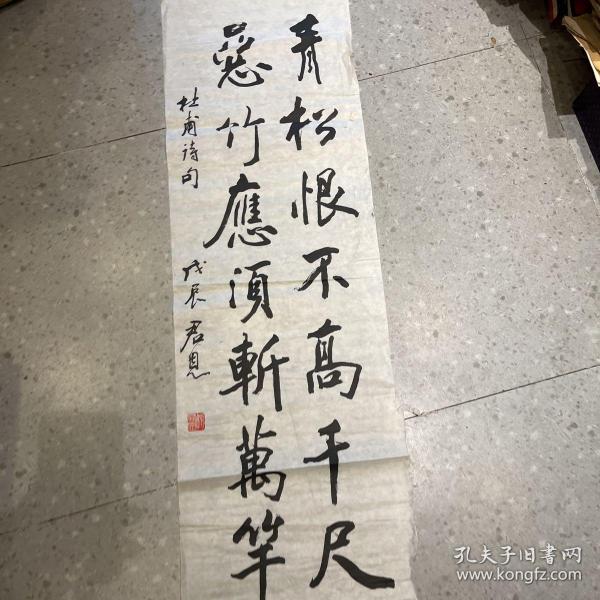 青松恨不高千尺
惡竹應須斬萬竿
杜甫诗句
戊辰 君恩
孔夫子旧书网
www.kongfz.com